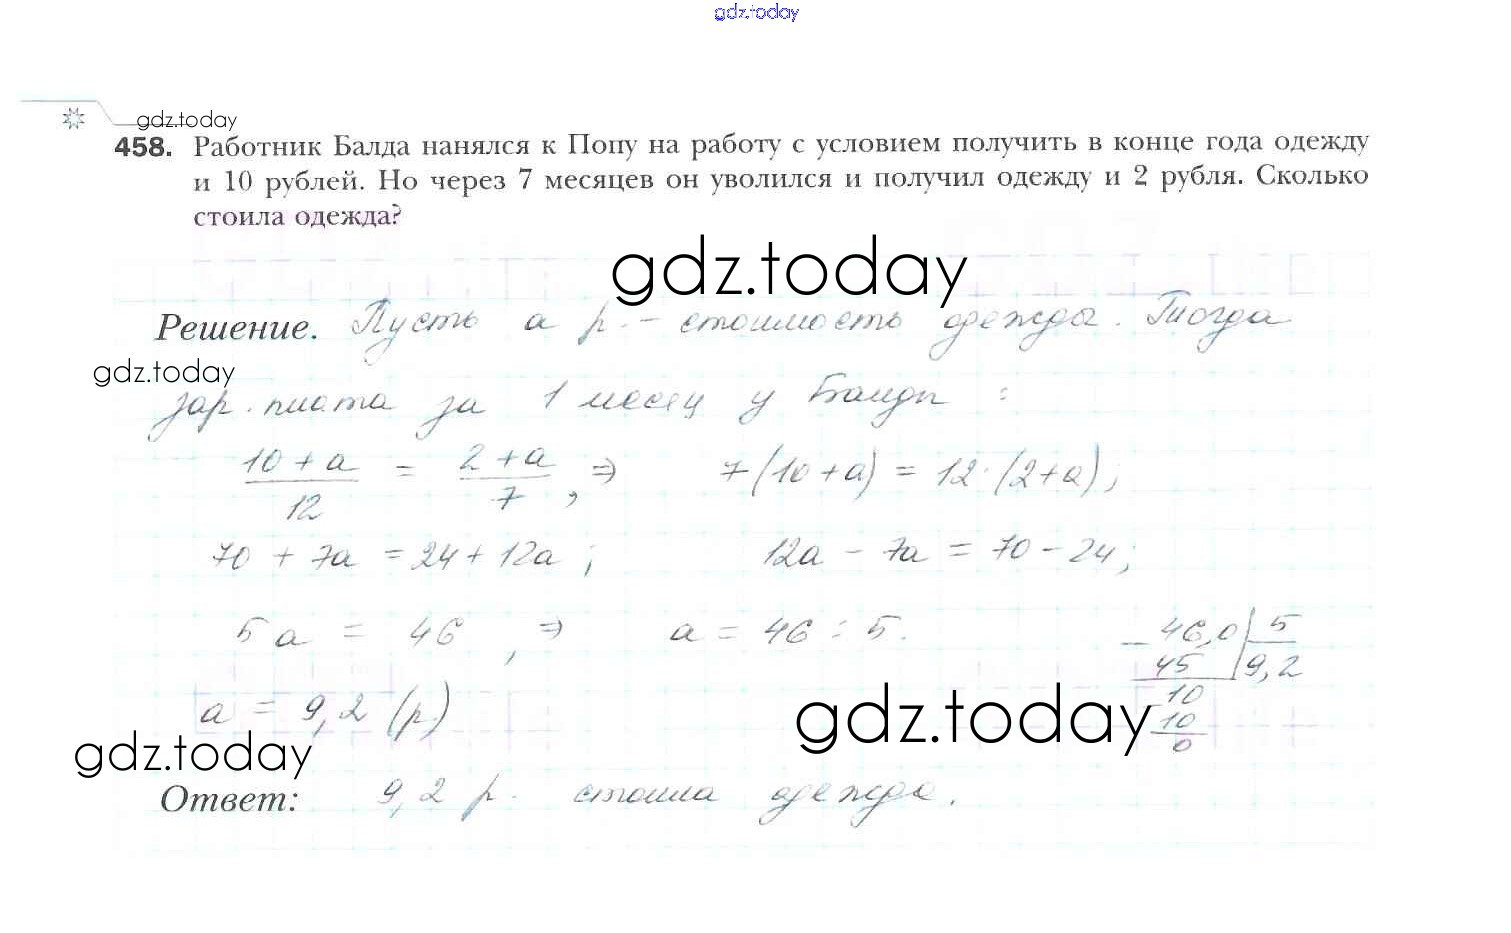 gdz.today
gdz.today
458. Работник Балда нанялся к Попу на работу с условием получить в конце года одежду
и 10 рублей. Но через 7 месяцев он уволился и получил одежду и 2 рубля. Сколько
стоила одежда?
gdz.today
Решение. Пусть a р. – стоимость одежды. Тогда
gdz.today
зар. плата за 1 месяц у Балды :
(10 + a)/12 = (2 + a)/7, ⇒ 7(10 + a) = 12·(2 + a);
70 + 7a = 24 + 12a; 12a – 7a = 70 – 24;
5a = 46, ⇒ a = 46 : 5.
46,0 | 5
45 9,2
10
10
0
a = 9,2 (р)
gdz.today
gdz.today
Ответ: 9,2 р. стоила одежда.